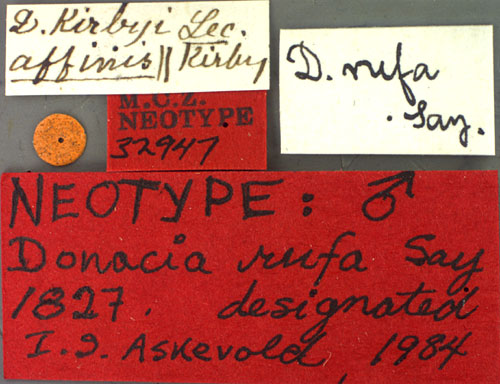 D. Kirbyi Lec.
affinis || Kirby
D. rufa
Say.
M.C.Z.
NEOTYPE
32947
NEOTYPE: ♂
Donacia rufa Say
1827. designated
I.S. Askevold, 1984